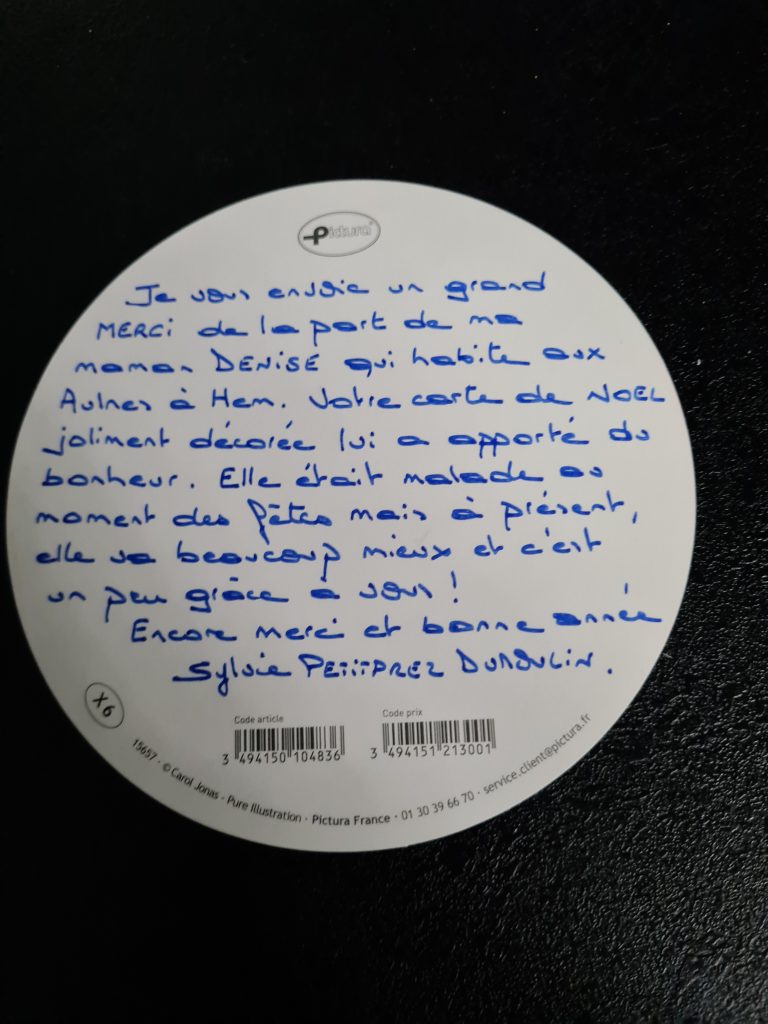 Pictura
Je vous envoie un grand
MERCi de la part de ma
maman DENISE qui habite aux
Aulnes à Hem. Votre carte de NOEL
joliment décorée lui a apporté du
bonheur. Elle était malade au
moment des fêtes mais à présent,
elle va beaucoup mieux et c'est
un peu grâce à vous !
Encore merci et bonne année
Sylvie PETITPREZ DUMOULIN.
X6
Code article
3 494150 104836
Code prix
3 494151 213001
15657 · © Carol Jonas · Pure Illustration · Pictura France · 01 30 39 66 70 · service.client@pictura.fr